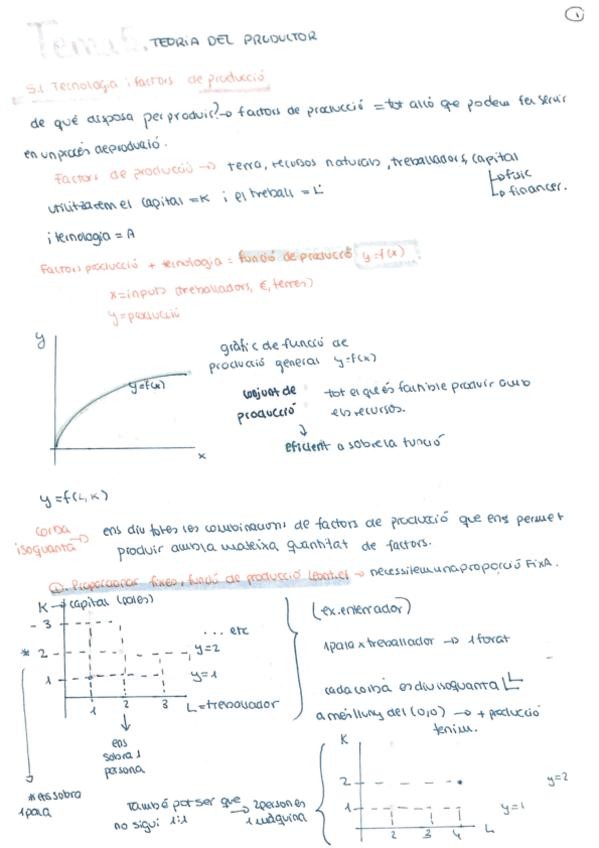 1
Tema 5. TEORIA DEL PRODUCTOR
5.1 Tecnologia i factors de producció
de qué disposa per produir? → factors de producció = tot allò que podem fer servir
en un procés de producció.
Factors de producció → terra, recursos naturals, treballadors, capital
↳ físic
↳ financer.
utilitzarem el capital = K i el treball = L
i tecnologia = A
Factors producció + tecnologia = funció de producció y=f(x)
x=inputs (treballadors, €, terres)
y=producció
y
y=f(x)
x
gràfic de funció de
producció general y=f(x)
conjunt de
producció
tot el que és factible produir amb
els recursos.
↓
eficient a sobre la funció
y=f(L,K)
corba
isoquanta →
ens diu totes les combinacions de factors de producció que ens permet
produir amb la mateixa quantitat de factors.
1. Proporcions fixes, funció de producció Leontief → necessitem una proporció FIXA.
K → capital (pales)
3
* 2
1
... etc
y=2
y=1
1 2 3 L=treballador
ens
sobra 1
persona
* ens sobra
1 pala
(ex. enterrador)
1 pala x treballador → 1 forat
cada corba es diu isoquanta
a més lluny del (0,0) → + producció
tenim.
També pot ser que
no sigui 1:1
→ 2 persones
1 màquina
K
2
1
2 3 4 L
y=2
y=1